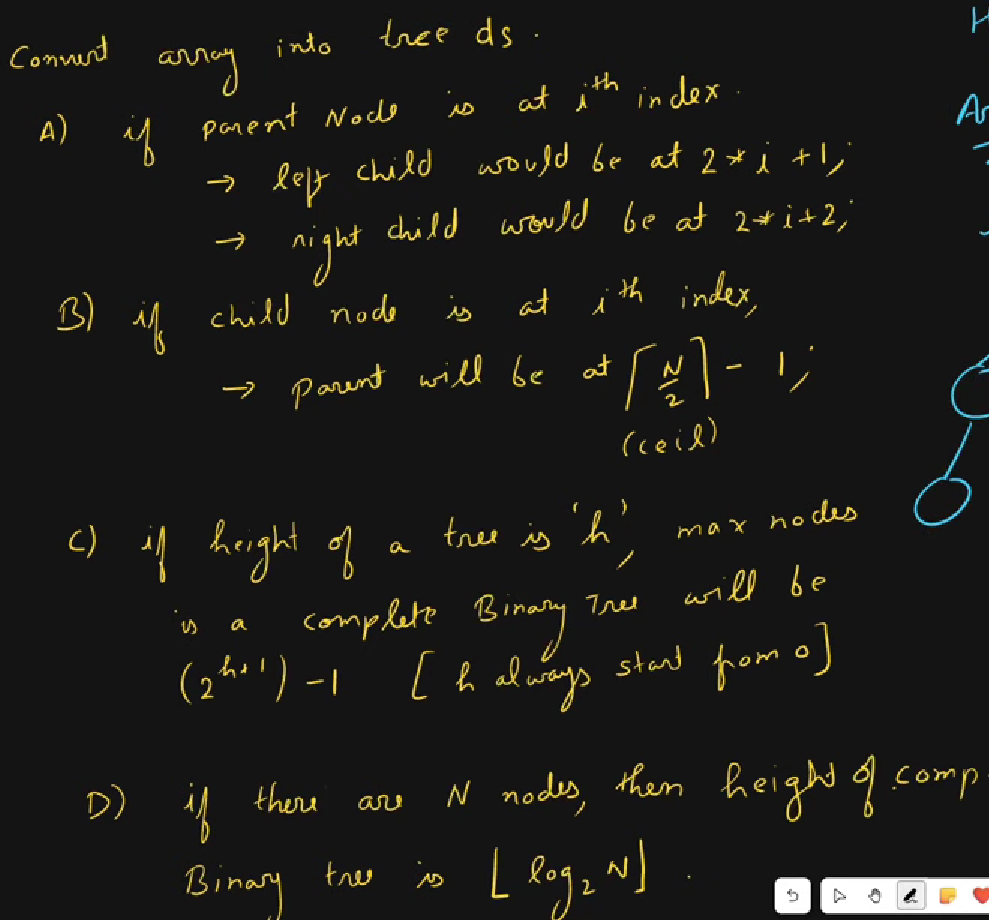 Convert array into tree ds.
A) if parent Node is at ith index.
→ left child would be at 2*i+1;
→ right child would be at 2*i+2;
B) if child node is at ith index,
→ parent will be at ⌈N/2⌉ - 1;
(ceil)
C) if height of a tree is 'h', max nodes
is a complete Binary Tree will be
(2^h+1) -1 [h always start from 0]
D) if there are N nodes, then height of comp
Binary tree is ⌊log₂N⌋.